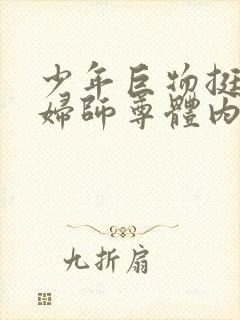 少年巨物挺
婦師尊體內
九折扇